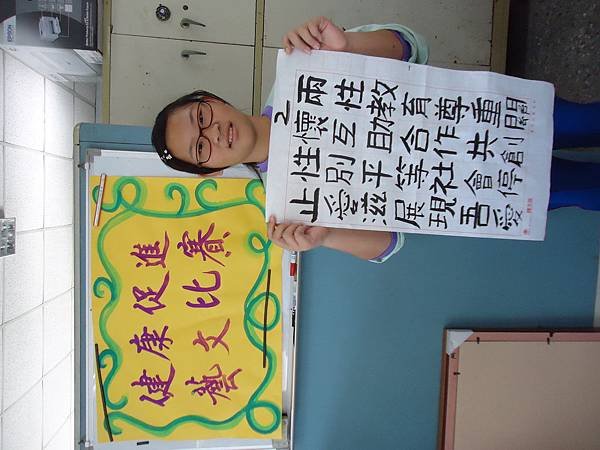 健康促進
藝文比賽
2
兩性教育尊重關
懷互助合作共創
性別平等社會停
止愛滋展現吾愛
EPSON